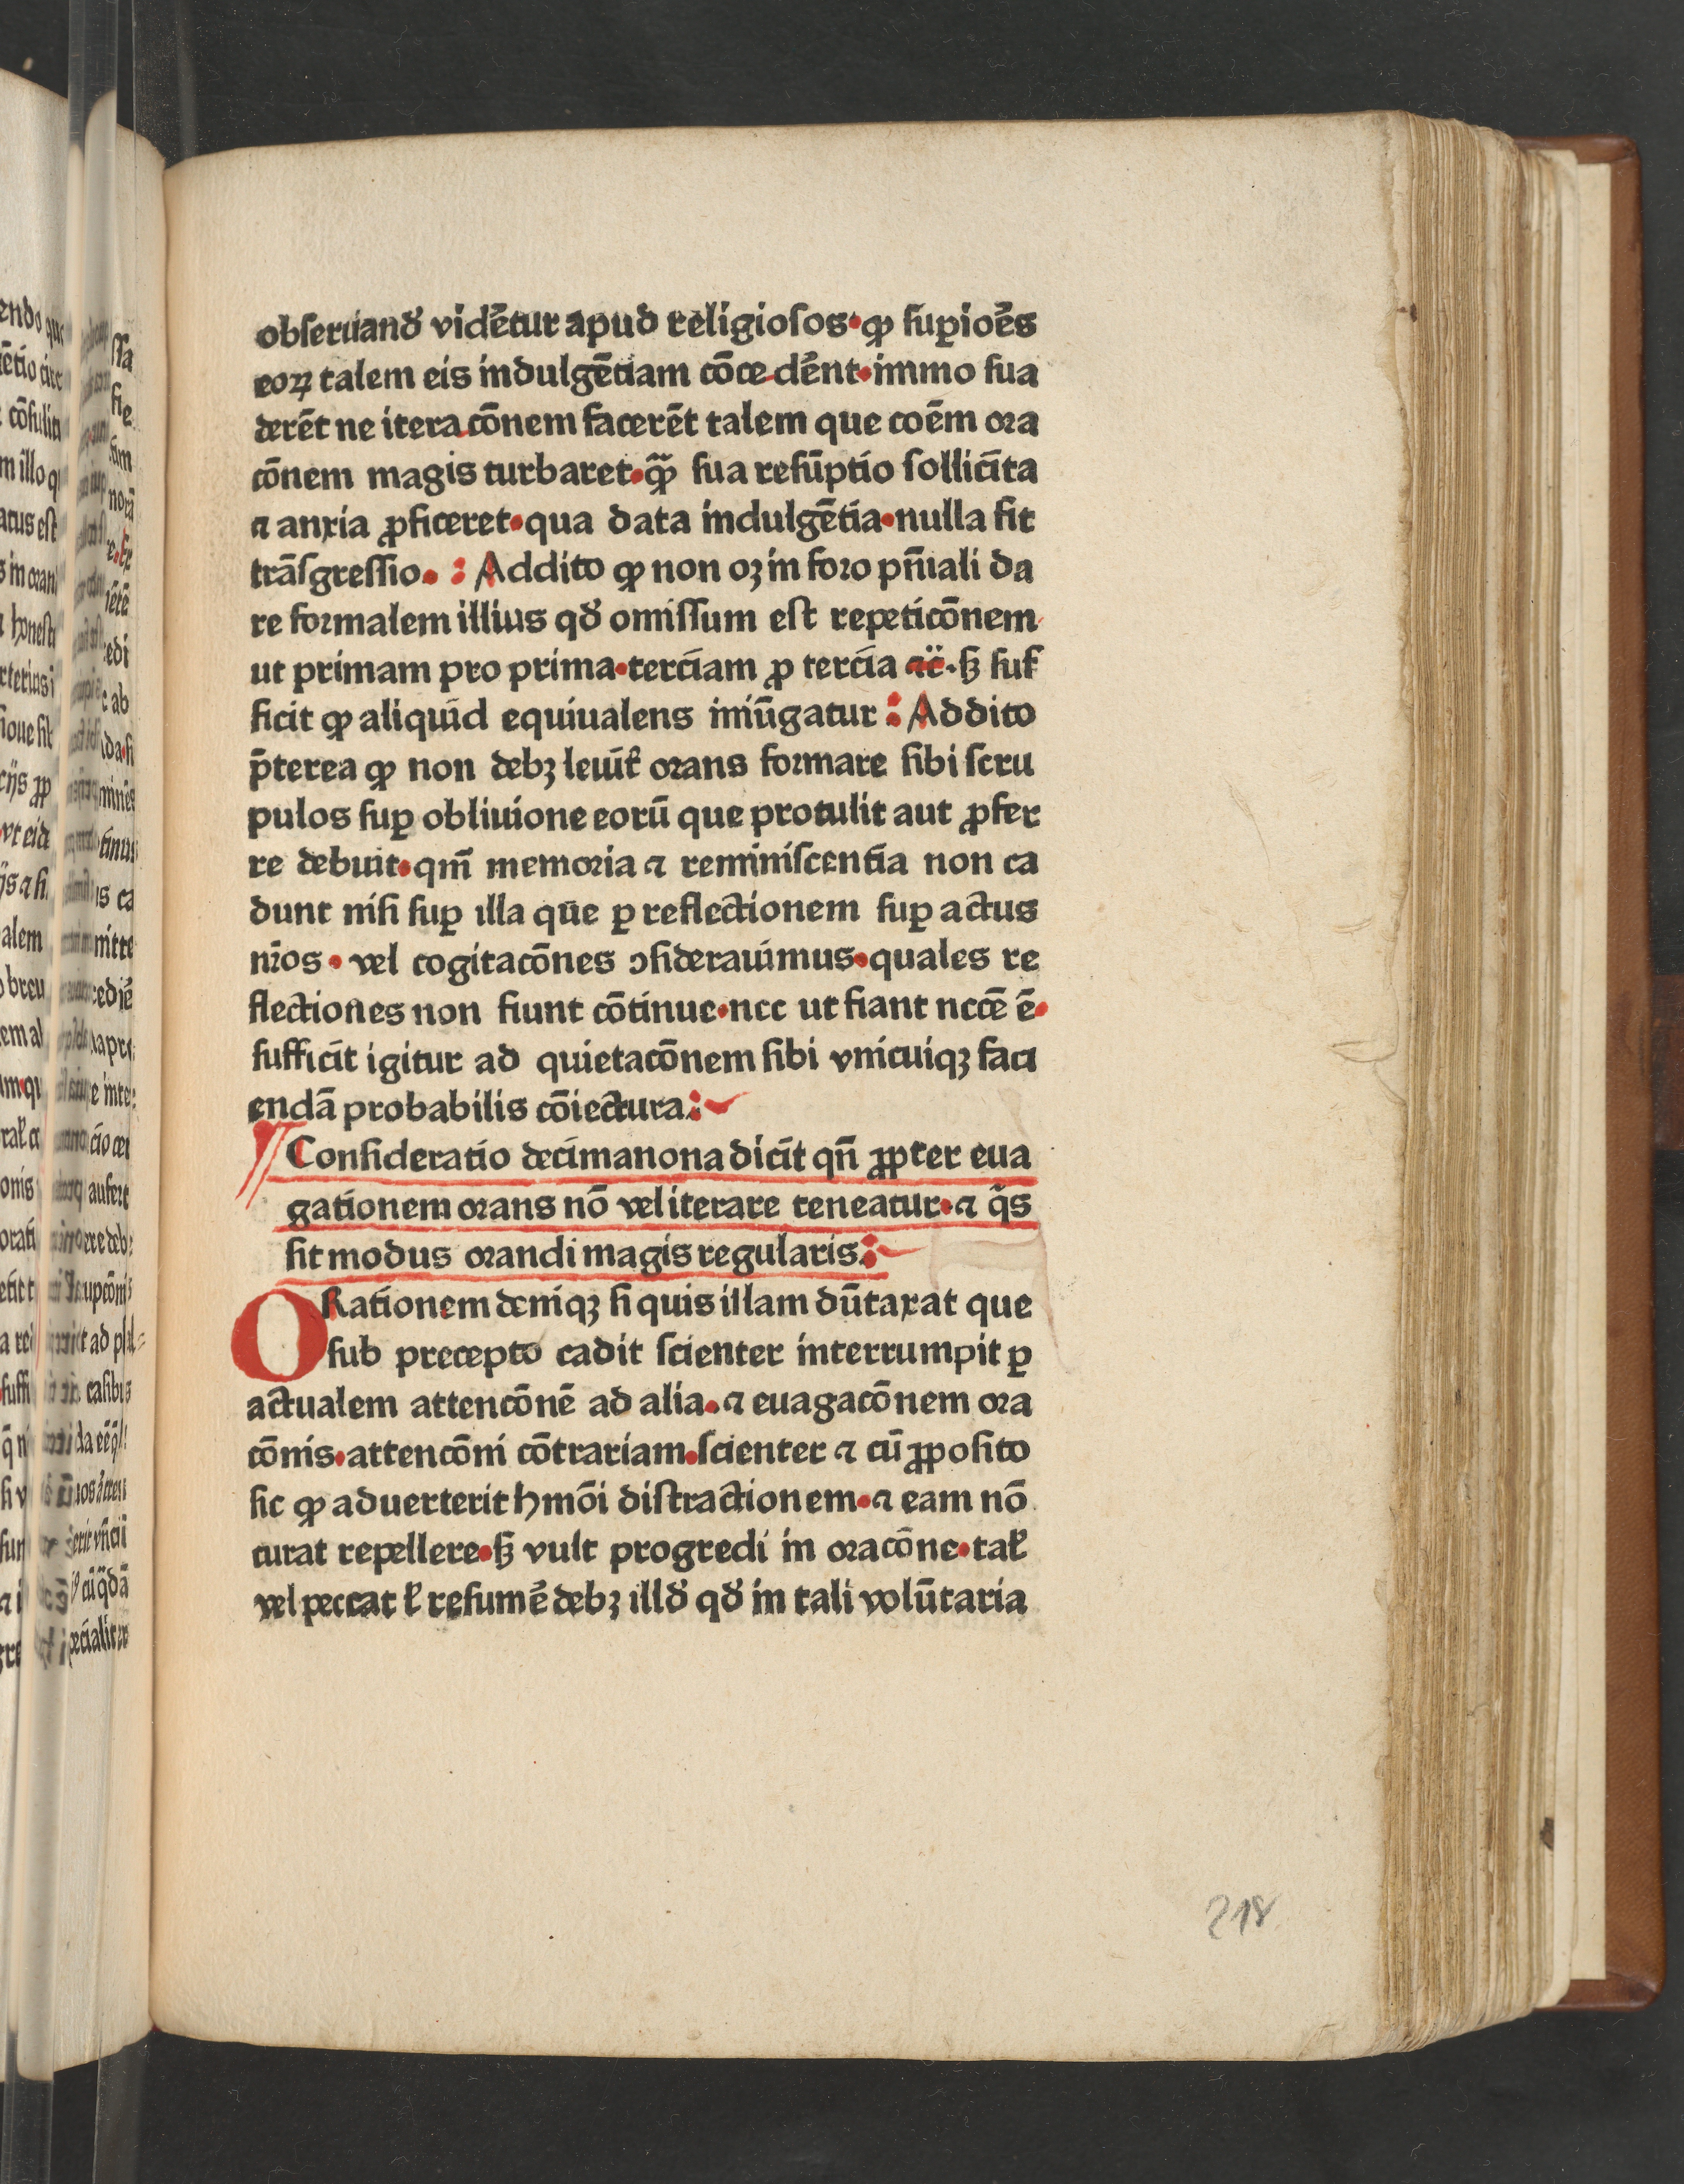 obseruand̕ vidẽtur apud religiosos·ꝙ suꝑioẽs
eoꝝ talem eis indulgẽtiam cõce dẽnt·immo sua
derẽt ne itera cõnem facerẽt talem que coẽm ora
cõnem magis turbaret·ꝙ̃ sua resũptio sollicita
⁊ anxia ꝓficeret·qua data indulgẽtia·nulla fit
trãsgressio. : Addito ꝙ non oꝫ in foro pñiali da
re formalem illius qd̕ omissum est repeticõnem
ut primam pro prima·terciam ꝓ tercia ⁊c̈.sꝫ suf
ficit ꝙ aliquid equiualens iniũgatur : Addito
p̃terea ꝙ non debꝫ leuit̕ orans formare sibi scru
pulos suꝑ obliuione eorũ que protulit aut ꝓfer
re debuit·qm̃ memoria ⁊ reminiscentia non ca
dunt nisi suꝑ illa que ꝑ reflectionem suꝑ actus
nr̃os · vel cogitacõnes ꝯsiderauimus·quales re
flectiones non fiunt cõtinue·nec ut fiant nccẽ ẽ·
sufficit igitur ad quietacõnem sibi vnicuiqꝫ faci
endã probabilis cõiectura:
¶ Consideratio decimanona dicit qñ ꝓpter eua
gationem orans nõ vel iterare teneatur·⁊ q̃s
sit modus orandi magis regularis:
ORationem deniqꝫ si quis illam dũtaxat que
sub precepto cadit scienter interrumpit ꝑ
actualem attencõnẽ ad alia.⁊ euagacõnem ora
cõnis·attencõni cõtrariam.scienter ⁊ cũ ꝓposito
sic ꝙ aduerterit hmõi distractionem·⁊ eam nõ
curat repellere·sꝫ vult progredi in oracõne·tal̕
vel peccat l̕ resumẽ debꝫ illd̕ qd̕ in tali volũtaria
218